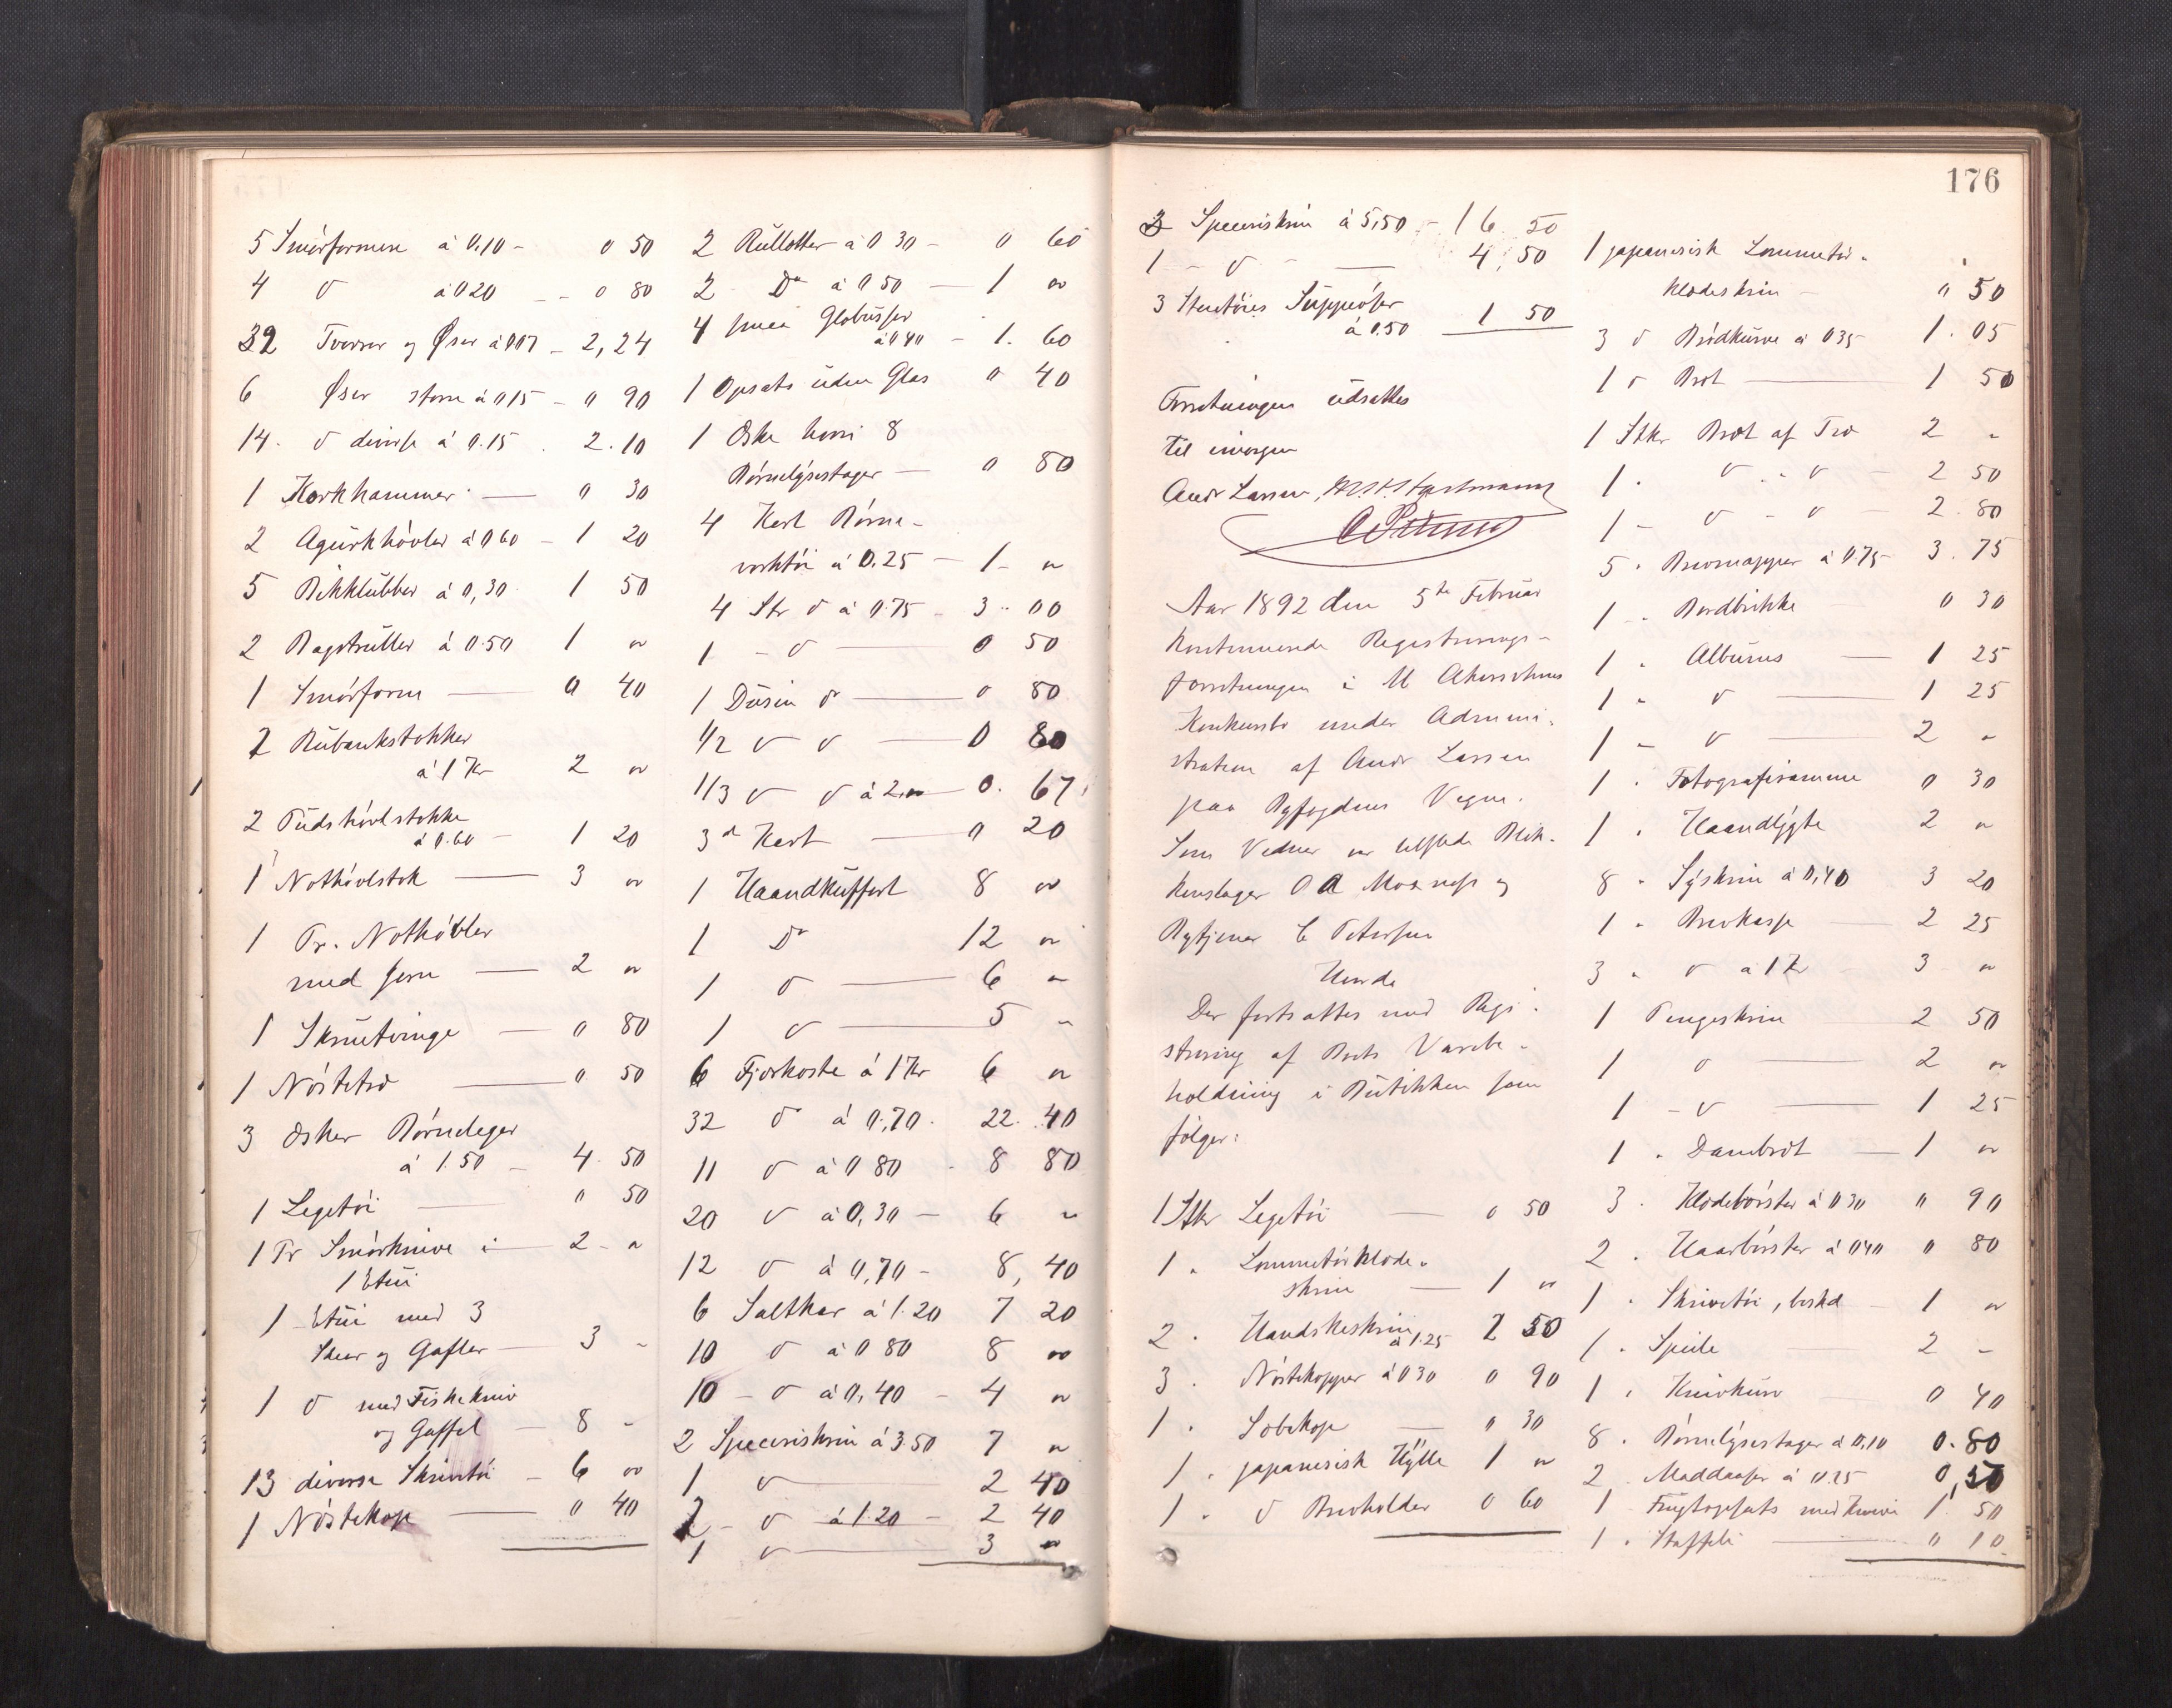 5 Smörformene á 0,10 - 0 50
4 d á 0 20 - - 0 80
32 Tvorer og Øser á 0 07 - 2,24
6 Øser store á 0 15 - 0 90
14. d diverse á 0.15 . 2.10
1 Korkhammer — 0 30
2 Agurkhövler á 0 60 - 1 20
5 Bikklubber á 0,30 1 50
2 Bagstruller á 0.50 1 "
1 Smörform — 0 40
2 Rubankstokker
á 1 Kr 2 "
2 Pudshövlstokke
á 0.60 - 1 20
1 Nothövlstok — 3 "
1 Pr. Nothövler
med Jern — 2 "
1 Skruetvinge — 0 80
1 Nöstetræ — 0 50
3 Æsker Börneleger
á 1.50 - 4.50
1 Legetöi — 0 50
1 Pr Smörknive i — 2 - "
1 Etui
1 Etui med 3
Skeer og Gafler — 3 -
1 d med Fiskekniv
og Gaffel - 8 -
13 diverse Skrivetöi - 6 "
1 Nöstekop — 0 40
2 Rullotter á 0 30 - 0 60
2 Do á 0 50 — 1 "
4 smaa Globusser
á 0 40 - 1. 60
1 Opsats uden Glas 0 40
1 Æske hvori 8
Börnelysestager — 0 80
4 Kart Börne-
verktöi á 0.25 — 1 - "
4 Str d á 0.75 - 3 . 00
1 - d — 0 50
1 Dusin d — 0 80
1/2 d d — 0 80
1/3 d d á 2 " — 0. 67
3 d Kart — 0 20
1 Haandkuffert 8 "
1 Do 12 "
1 d — 6 "
1 d — 5 "
6 Fjærkoste á 1 Kr 6 "
32 d á 0,70. 22. 40
11 d á 0 80 . 8 80
20 d á 0,30 — 6 "
12 d á 0,70 - 8, 40
6 Saltkar á 1.20 7 20
10 d á 0 80 8 "
10 - d á 0,40 - 4 "
2 Speceriskrin á 3.50 7 "
1 d — 2 40
2 - d á 1.20 - 2 40
1 d — 3 "
176
3 Speceriskrin á 5,50 - 16 50
1 - d - — 4,50
3 Stentöies Suppeöser
á 0.50 1 50
Forretningen udsattes
til imorgen
Andr Larsen,
Aar 1892 den 5te Februar
kontinuerede Registrerings-
forretningen i M Akersohns
Konkursbo under Admini-
stration af Andr Larsen
paa Byfogdens Vegne.
Som Vidner var tilstede Blik-
kenslager O A og
Bytjener C Petersen
Hvorda
Der fortsattes med Regi-
strering af Boets Varebe-
holdning i Butikken som
fölger:
1 Stkr Legetöi — 0 50
1 " Lommetörklæde-
skrin — 1 "
2 . Handskeskrin
á 1.25 2 50
3 . Nöstekopper á 0 30 0 90
1 . Sobekop — 0 30
1 . japanesisk Hylle 1 "
1 . d Brevholder 0 60
1 japanesisk Lommetör-
klædeskrin — 0 50
3 d Brödkurve á 0 35 1 . 05
1 d Bret — 1 50
1 Stkr Bret af Træ 2 "
1 . d . d - 2 50
1 - d - d - 2.80
5 . Brevmapper á 0.75 3.75
1 . Bordbrikke 0 30
1 . Albums — 1 25
1 " d — 1 25
1 - d — 2 "
1 . Fotografiramme 0 30
1 . Haandlygte 2 "
8 . Syskrin á 0,40 3 20
1 . Brevkasse 2 25
3 . d á 1 Kr 3 "
1 Pengeskrin 2 50
1 d — 2 "
1 - d — 1 25
1 . Dambret — 1 "
3 . Klædebörster á 0 30 " 90
2 . Haarbörster á 0 40 0 80
1 . Skrivetöi, beskd - 1 "
1 . Speile 2 -
1 . Knivkurv 0 40
8 . Börnelysestager á 0,10 0.80
2 . Maddaaser á 0.25 0,50
1 Frugtopsats med Knive 1 50
1 . Staffeli — 0 10